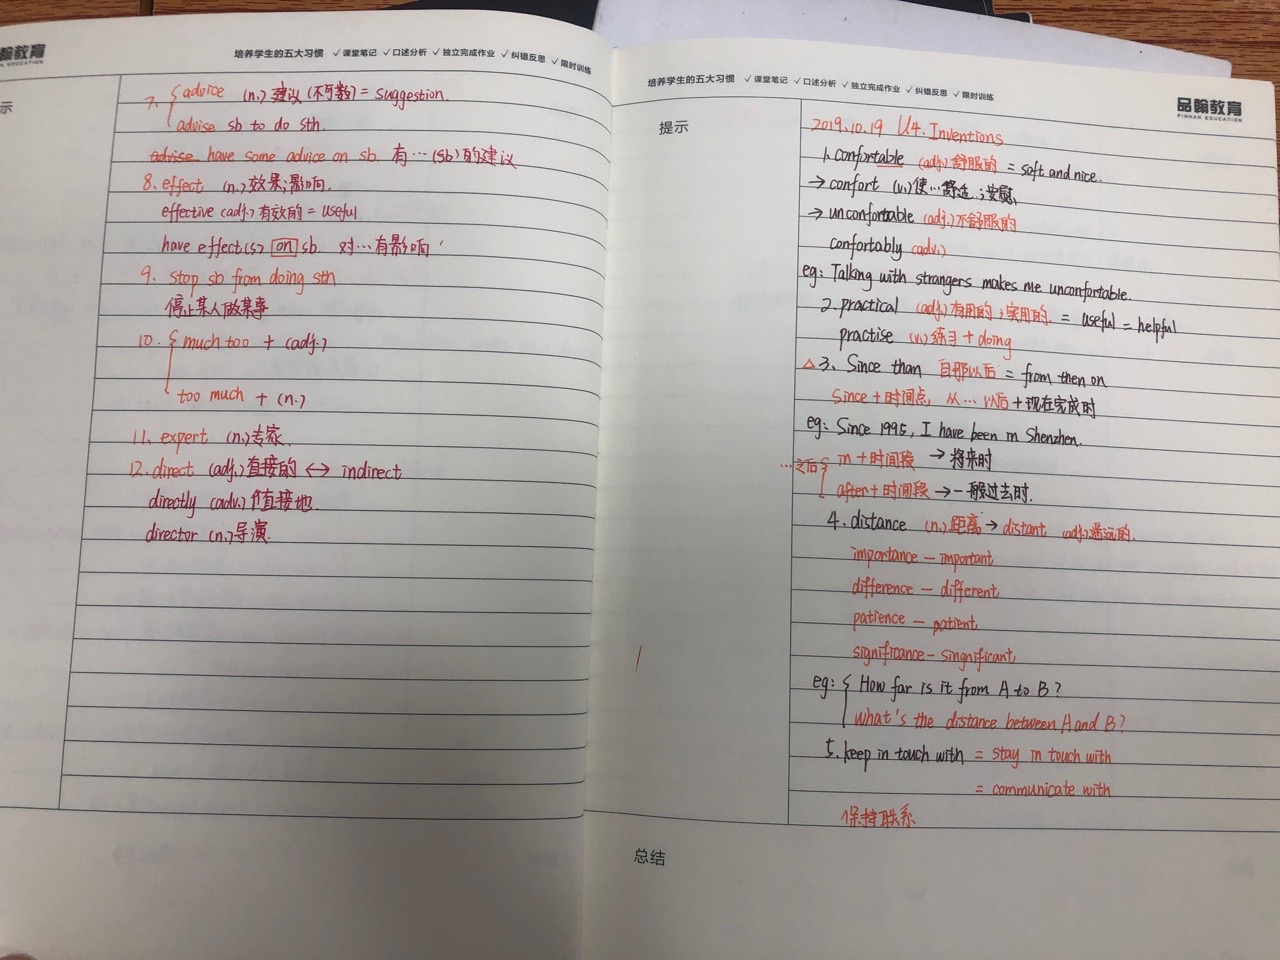 翰教育
N EDUCATION
培养学生的五大习惯 ✓课堂笔记 ✓口述分析 ✓独立完成作业 ✓纠错反思 ✓限时训练
示
7. { advice (n.) 建议 (不可数) = suggestion.
advise sb to do sth.
advise have some advice on sb. 有…(sb)的建议
8. effect (n.) 效果;影响.
effective (adj.) 有效的 = useful
have effect(s) on sb. 对…有影响
9. stop sb from doing sth
停止某人做某事
10. { much too + (adj.)
too much + (n.)
11. expert (n.) 专家.
12. direct (adj.) 直接的 ↔ indirect
directly (adv.) 直接地.
director (n.) 导演.
培养学生的五大习惯 ✓课堂笔记 ✓口述分析 ✓独立完成作业 ✓纠错反思 ✓限时训练
品翰教育
PINHAN EDUCATION
提示
2019.10.19 U4. Inventions
1. confortable (adj.) 舒服的 = soft and nice.
→ confort (v.) 使…舒适;安慰
→ unconfortable (adj.) 不舒服的
confortably (adv.)
eg: Talking with strangers makes me unconfortable.
2. practical (adj.) 有用的;实用的. = useful = helpful
practise (v.) 练习 + doing
△ 3. Since than 自那以后 = from then on
Since + 时间点, 从…以后 + 现在完成时
eg: Since 1995, I have been in Shenzhen.
…之后 { in + 时间段 → 将来时
after + 时间段 → 一般过去时.
4. distance (n.) 距离 → distant (adj.) 遥远的.
importance - important
difference - different
patience - patient
significance - singnificant
eg: { How far is it from A to B?
what's the distance between A and B?
5. keep in touch with = stay in touch with
= communicate with
保持联系
总结